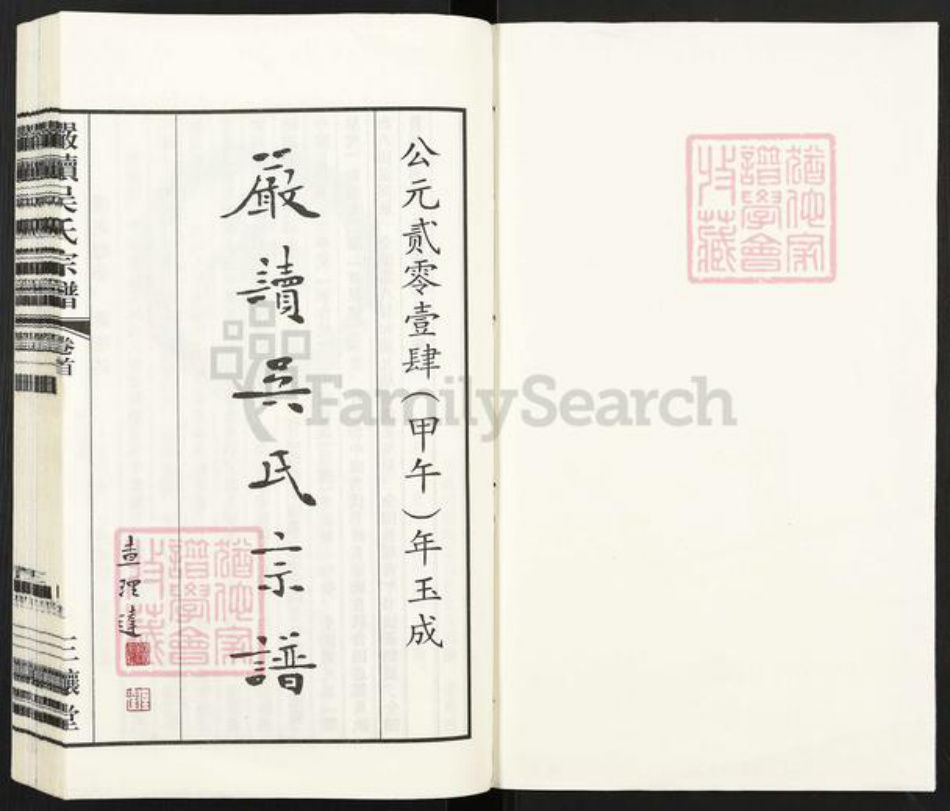 猶他家
譜學會
收藏
公元贰零壹肆(甲午)年玉成
嚴讀吴氏宗譜
查理達
猶他家
譜學會
收藏
嚴讀吴氏宗譜
卷首
三讓堂
FamilySearch